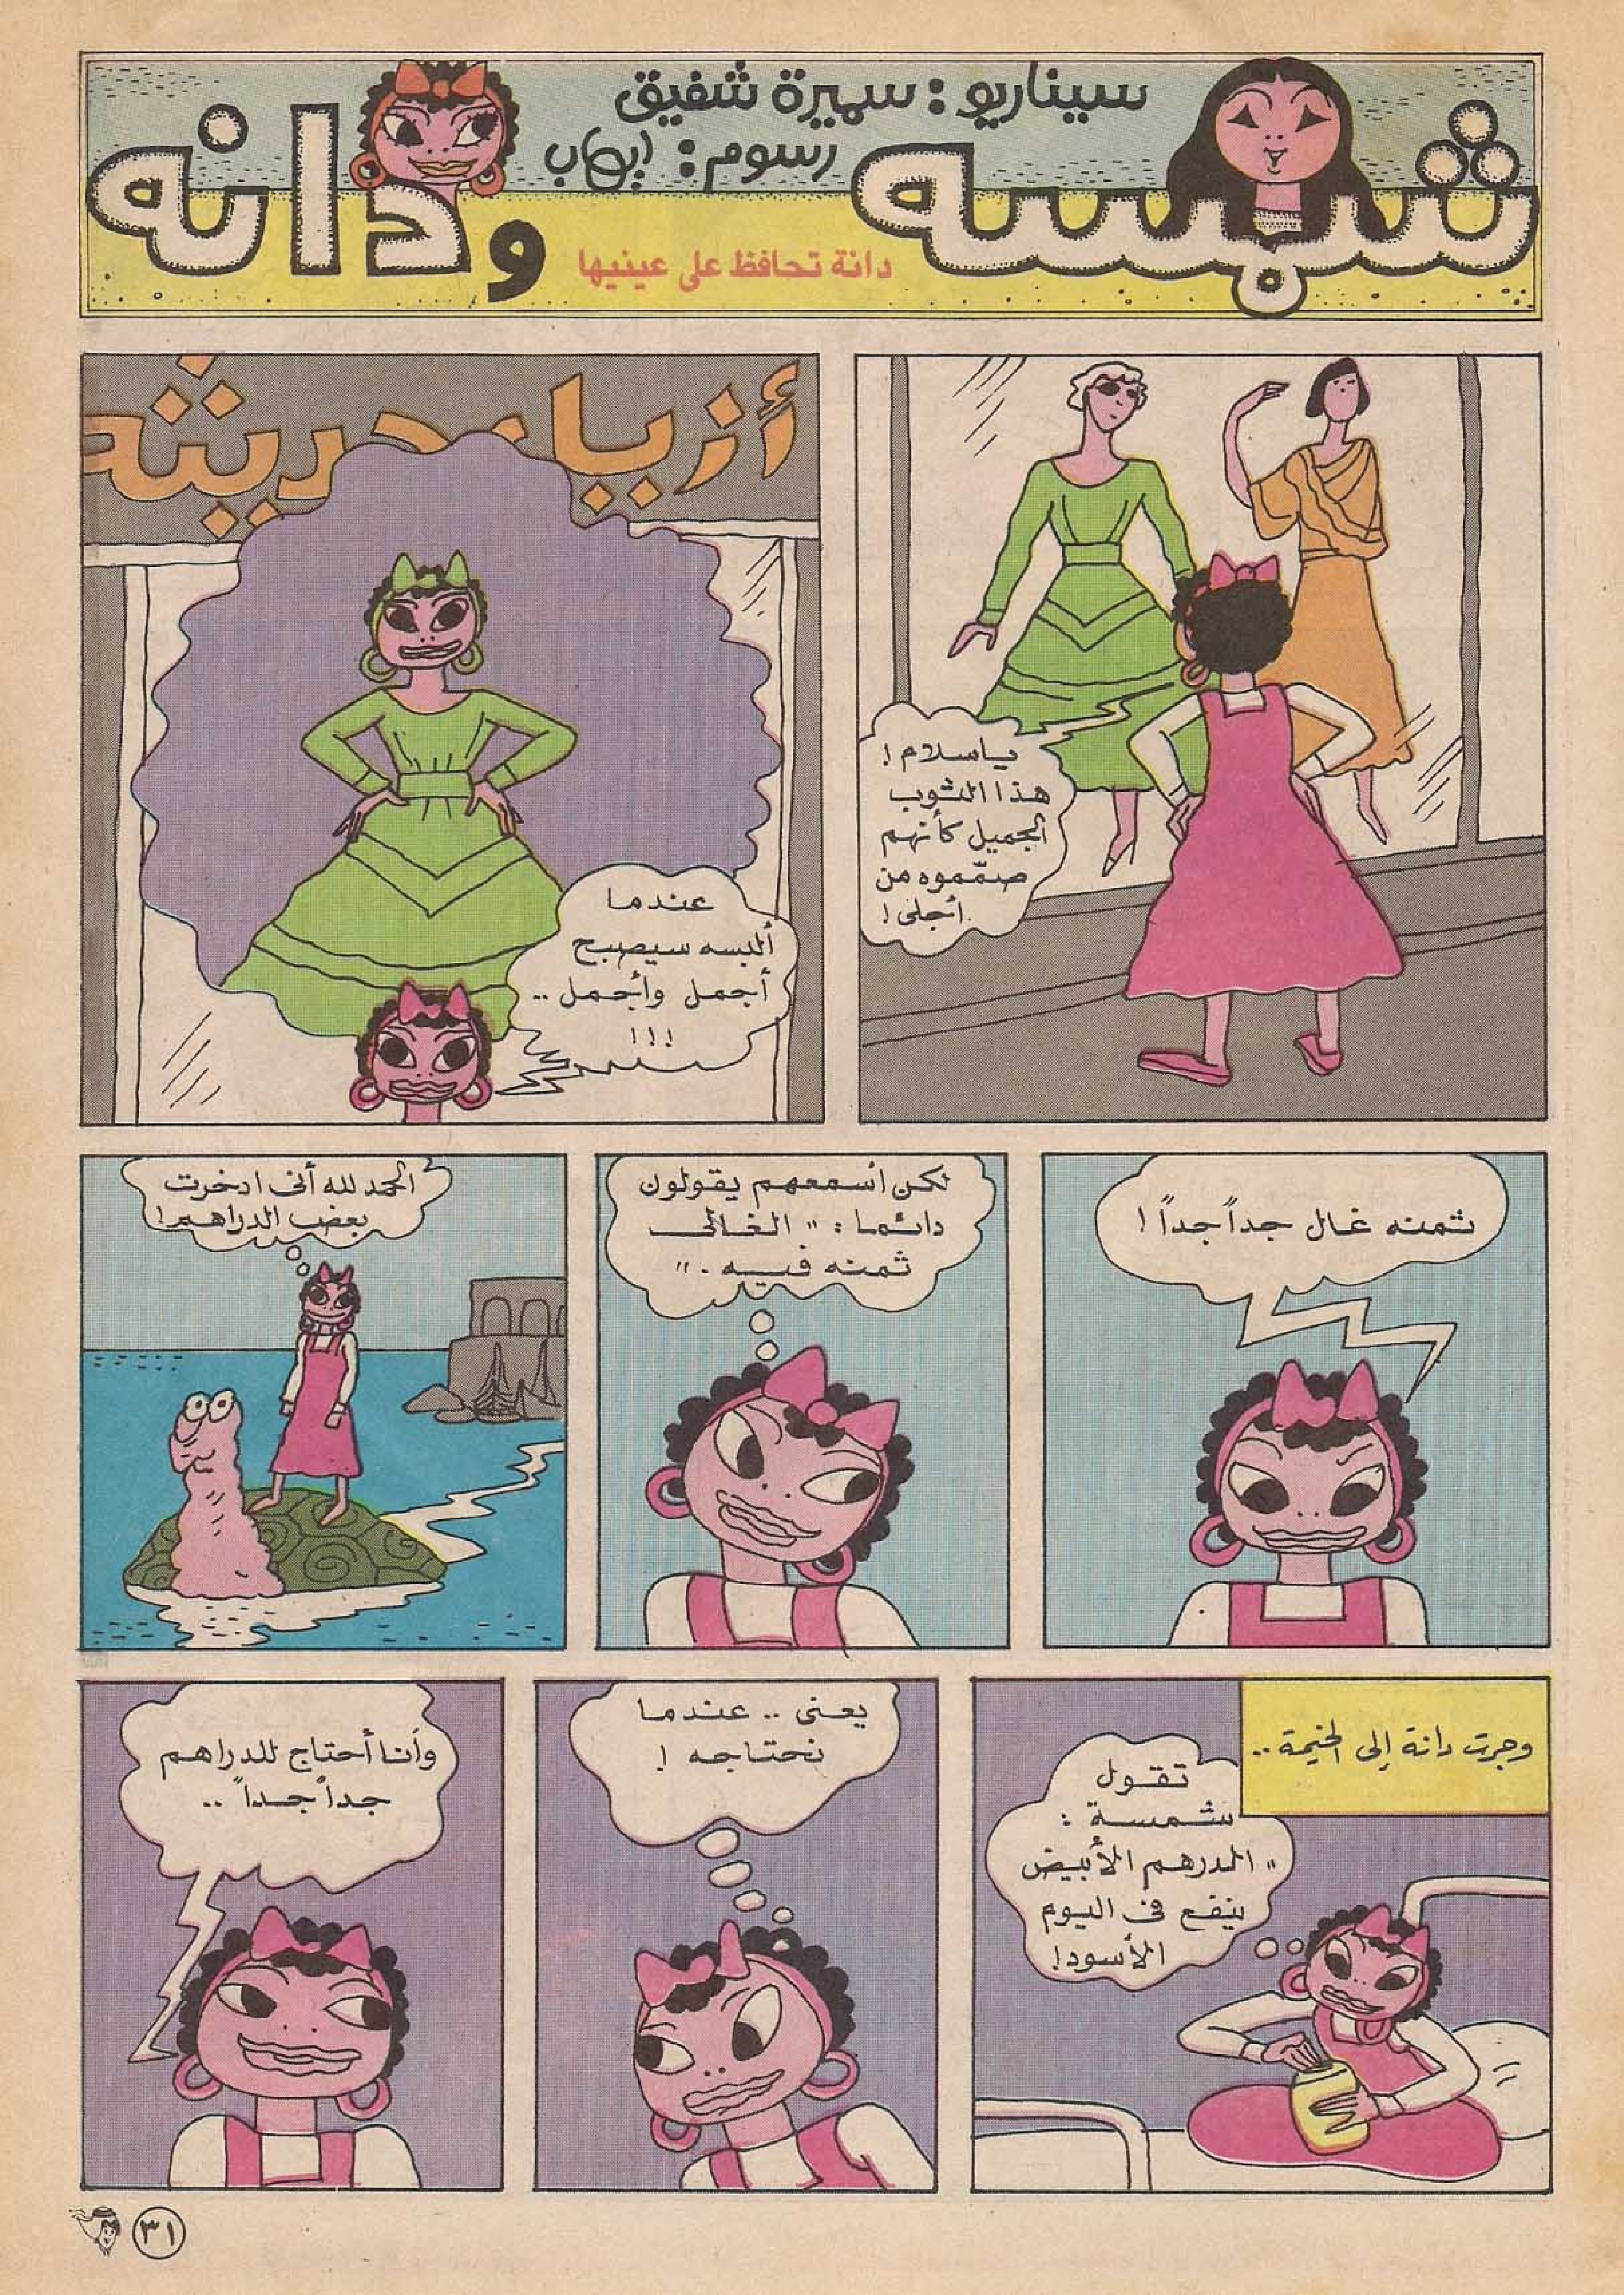 شمسه ودانه
سيناريو : سميرة شفيق
رسوم : إيهاب
دانة تحافظ على عينيها
ياسلام !
هذا الثوب
الجميل كأنهم
صمّموه من
أجلى !
أزياء حديثه
عندما
ألبسه سيصبح
أجمل وأجمل ..
! ! !
ثمنه غال جداً جداً !
لكن أسمعهم يقولون
دائما : " الغالى
ثمنه فيه . "
الحمد لله أنى ادخرت
بعض الدراهم !
وجرت دانة إلى الخيمة ..
تقول
شمسة :
" الدرهم الأبيض
ينفع فى اليوم
الأسود !
يعنى .. عندما
نحتاجه !
وأنا أحتاج للدراهم
جداً جداً ..
٣١